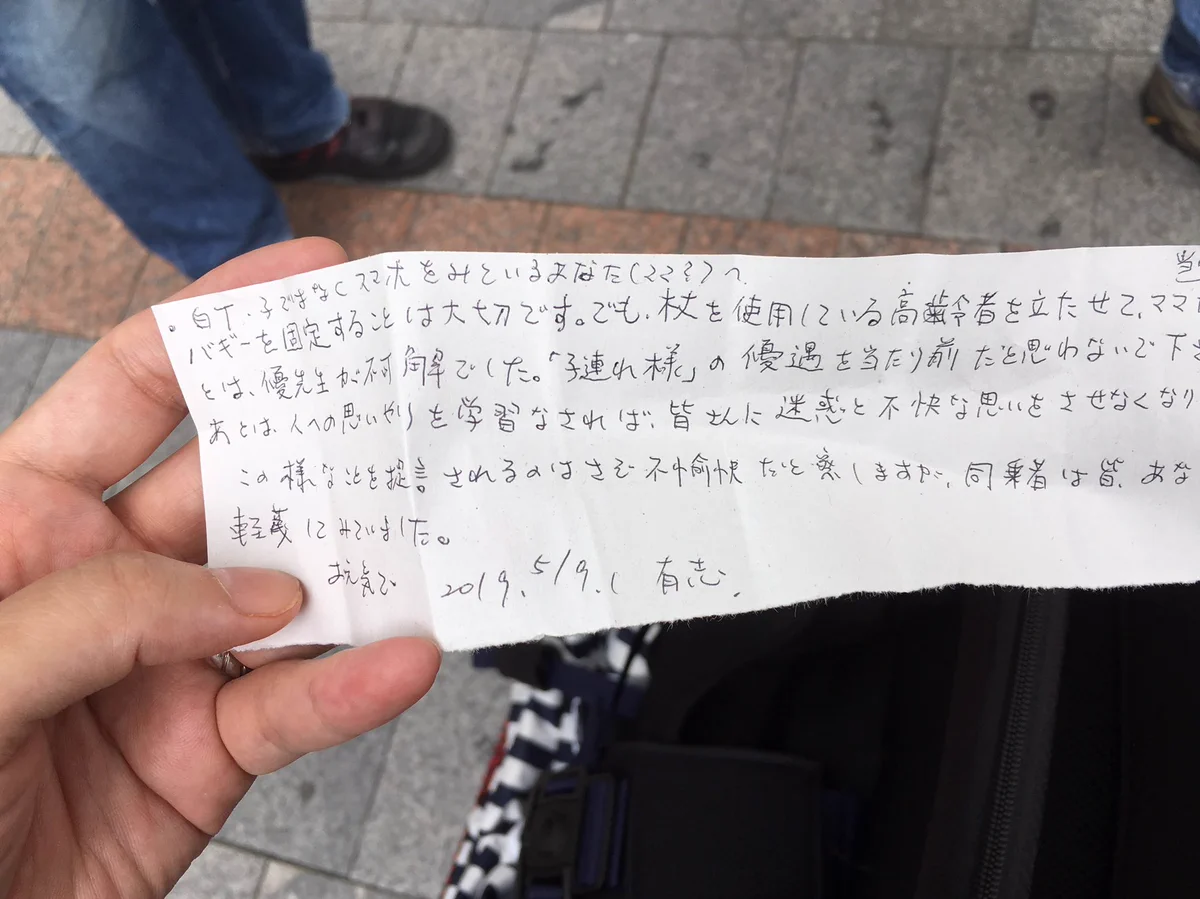 子ではなくスマホをみているあなた(ママ?)へ 当
バギーを固定することは大切です。でも、杖を使用している高齢者を立たせて、ママ
とは、優先生が不可解でした。「子連れ様」の優遇を当たり前だと思わないで下さ
あとは、人への思いやりを学習なされば、皆さんに迷惑と不快な思いをさせなくなり
この様なことを提言されるのはさぞ不愉快だと察しますが、同乗者は皆、あな
軽蔑してみていました。
お元気で 2019. 5/9. 有志.